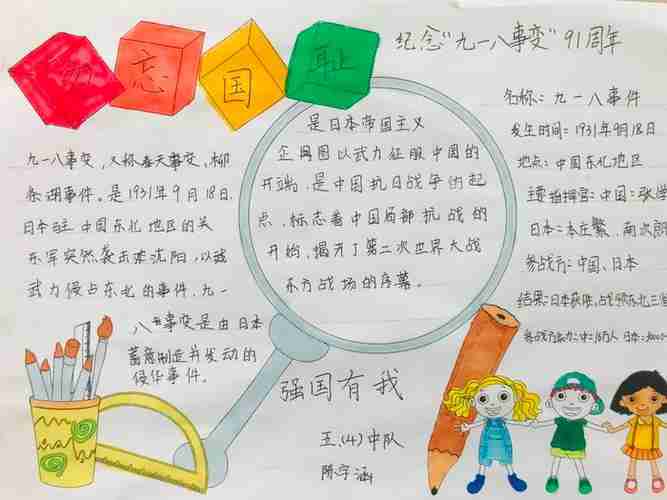 勿忘国耻
纪念“九一八事变”91周年
九一八事变，又称奉天事变、柳
条湖事件。是1931年9月18日，
日本在中国东北地区的关
东军突然袭击沈阳，以
武力侵占东北的事件。九一
八事变是由日本
蓄意制造并发动的
侵华事件。
是日本帝国主义
企图以武力征服中国的
开端，是中国抗日战争的起
点，标志着中国局部抗战的
开始，揭开了第二次世界大战
东方战场的序幕。
名称：九一八事件
发生时间：1931年9月18日
地点：中国东北地区
主要指挥官：中国：张学
日本：本庄繁、南次郎
参战方：中国、日本
结果：日本获胜，占领东北三省
参战方兵力：中：16万人 日本：
强国有我
五.(4)中队
陈宇涵